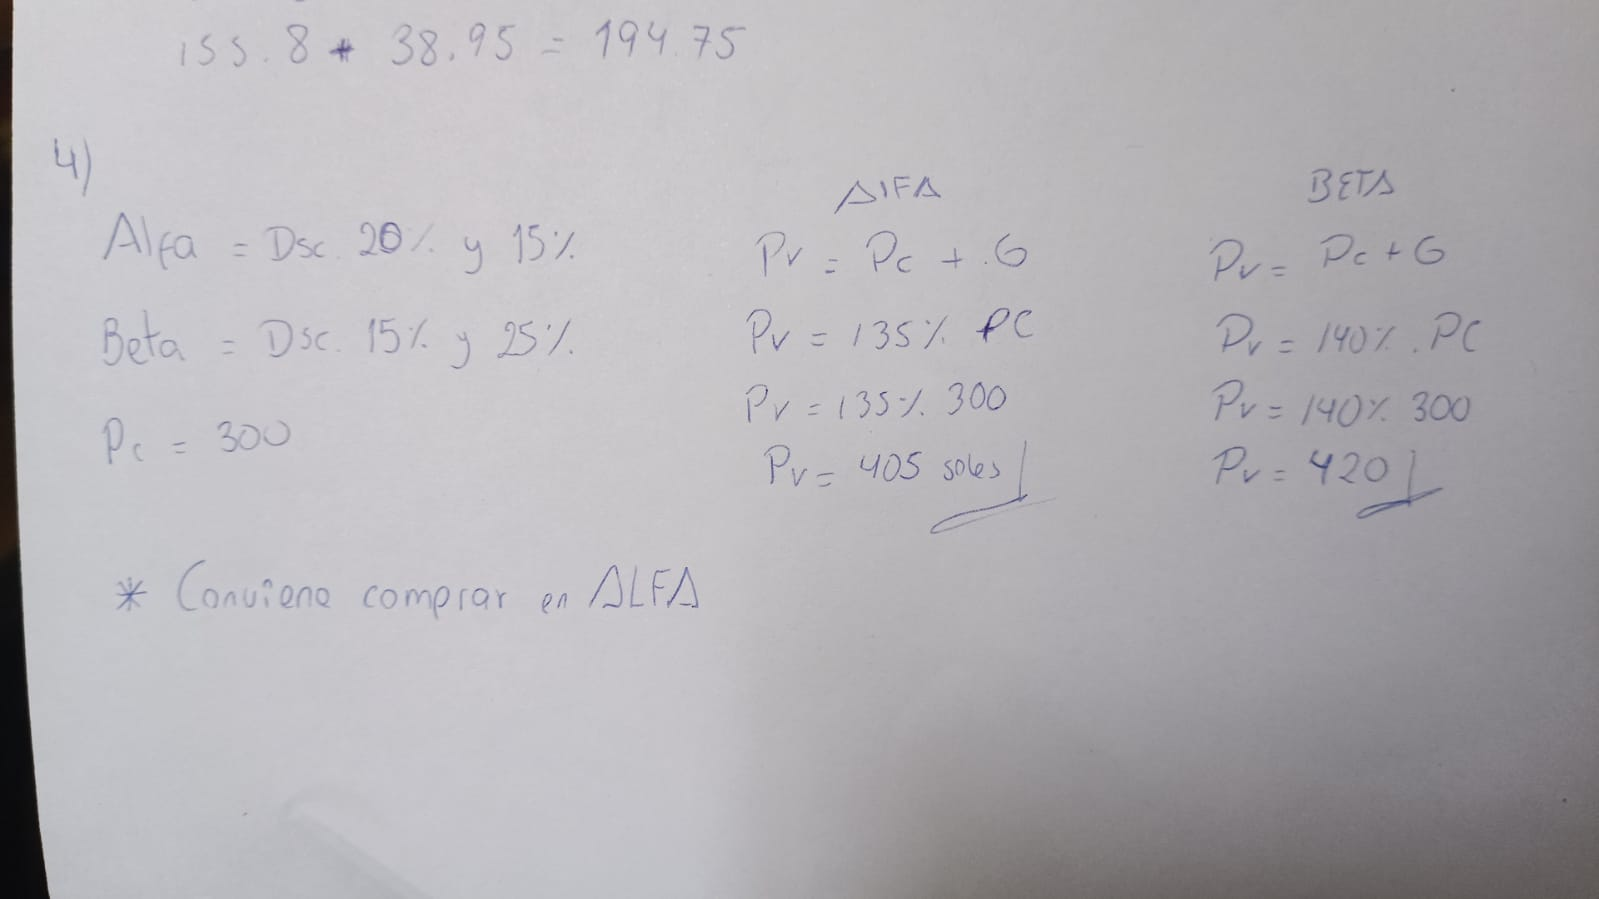 155.8 + 38.95 = 194.75
4)
Alfa = Dsc. 20% y 15%
Beta = Dsc. 15% y 25%
Pc = 300
AlFA
Pv = Pc + G
Pv = 135% PC
Pv = 135% 300
Pv = 405 soles
BETA
Pv = Pc + G
Pv = 140% . PC
Pv = 140% 300
Pv = 420
* Conviene comprar en ALFA